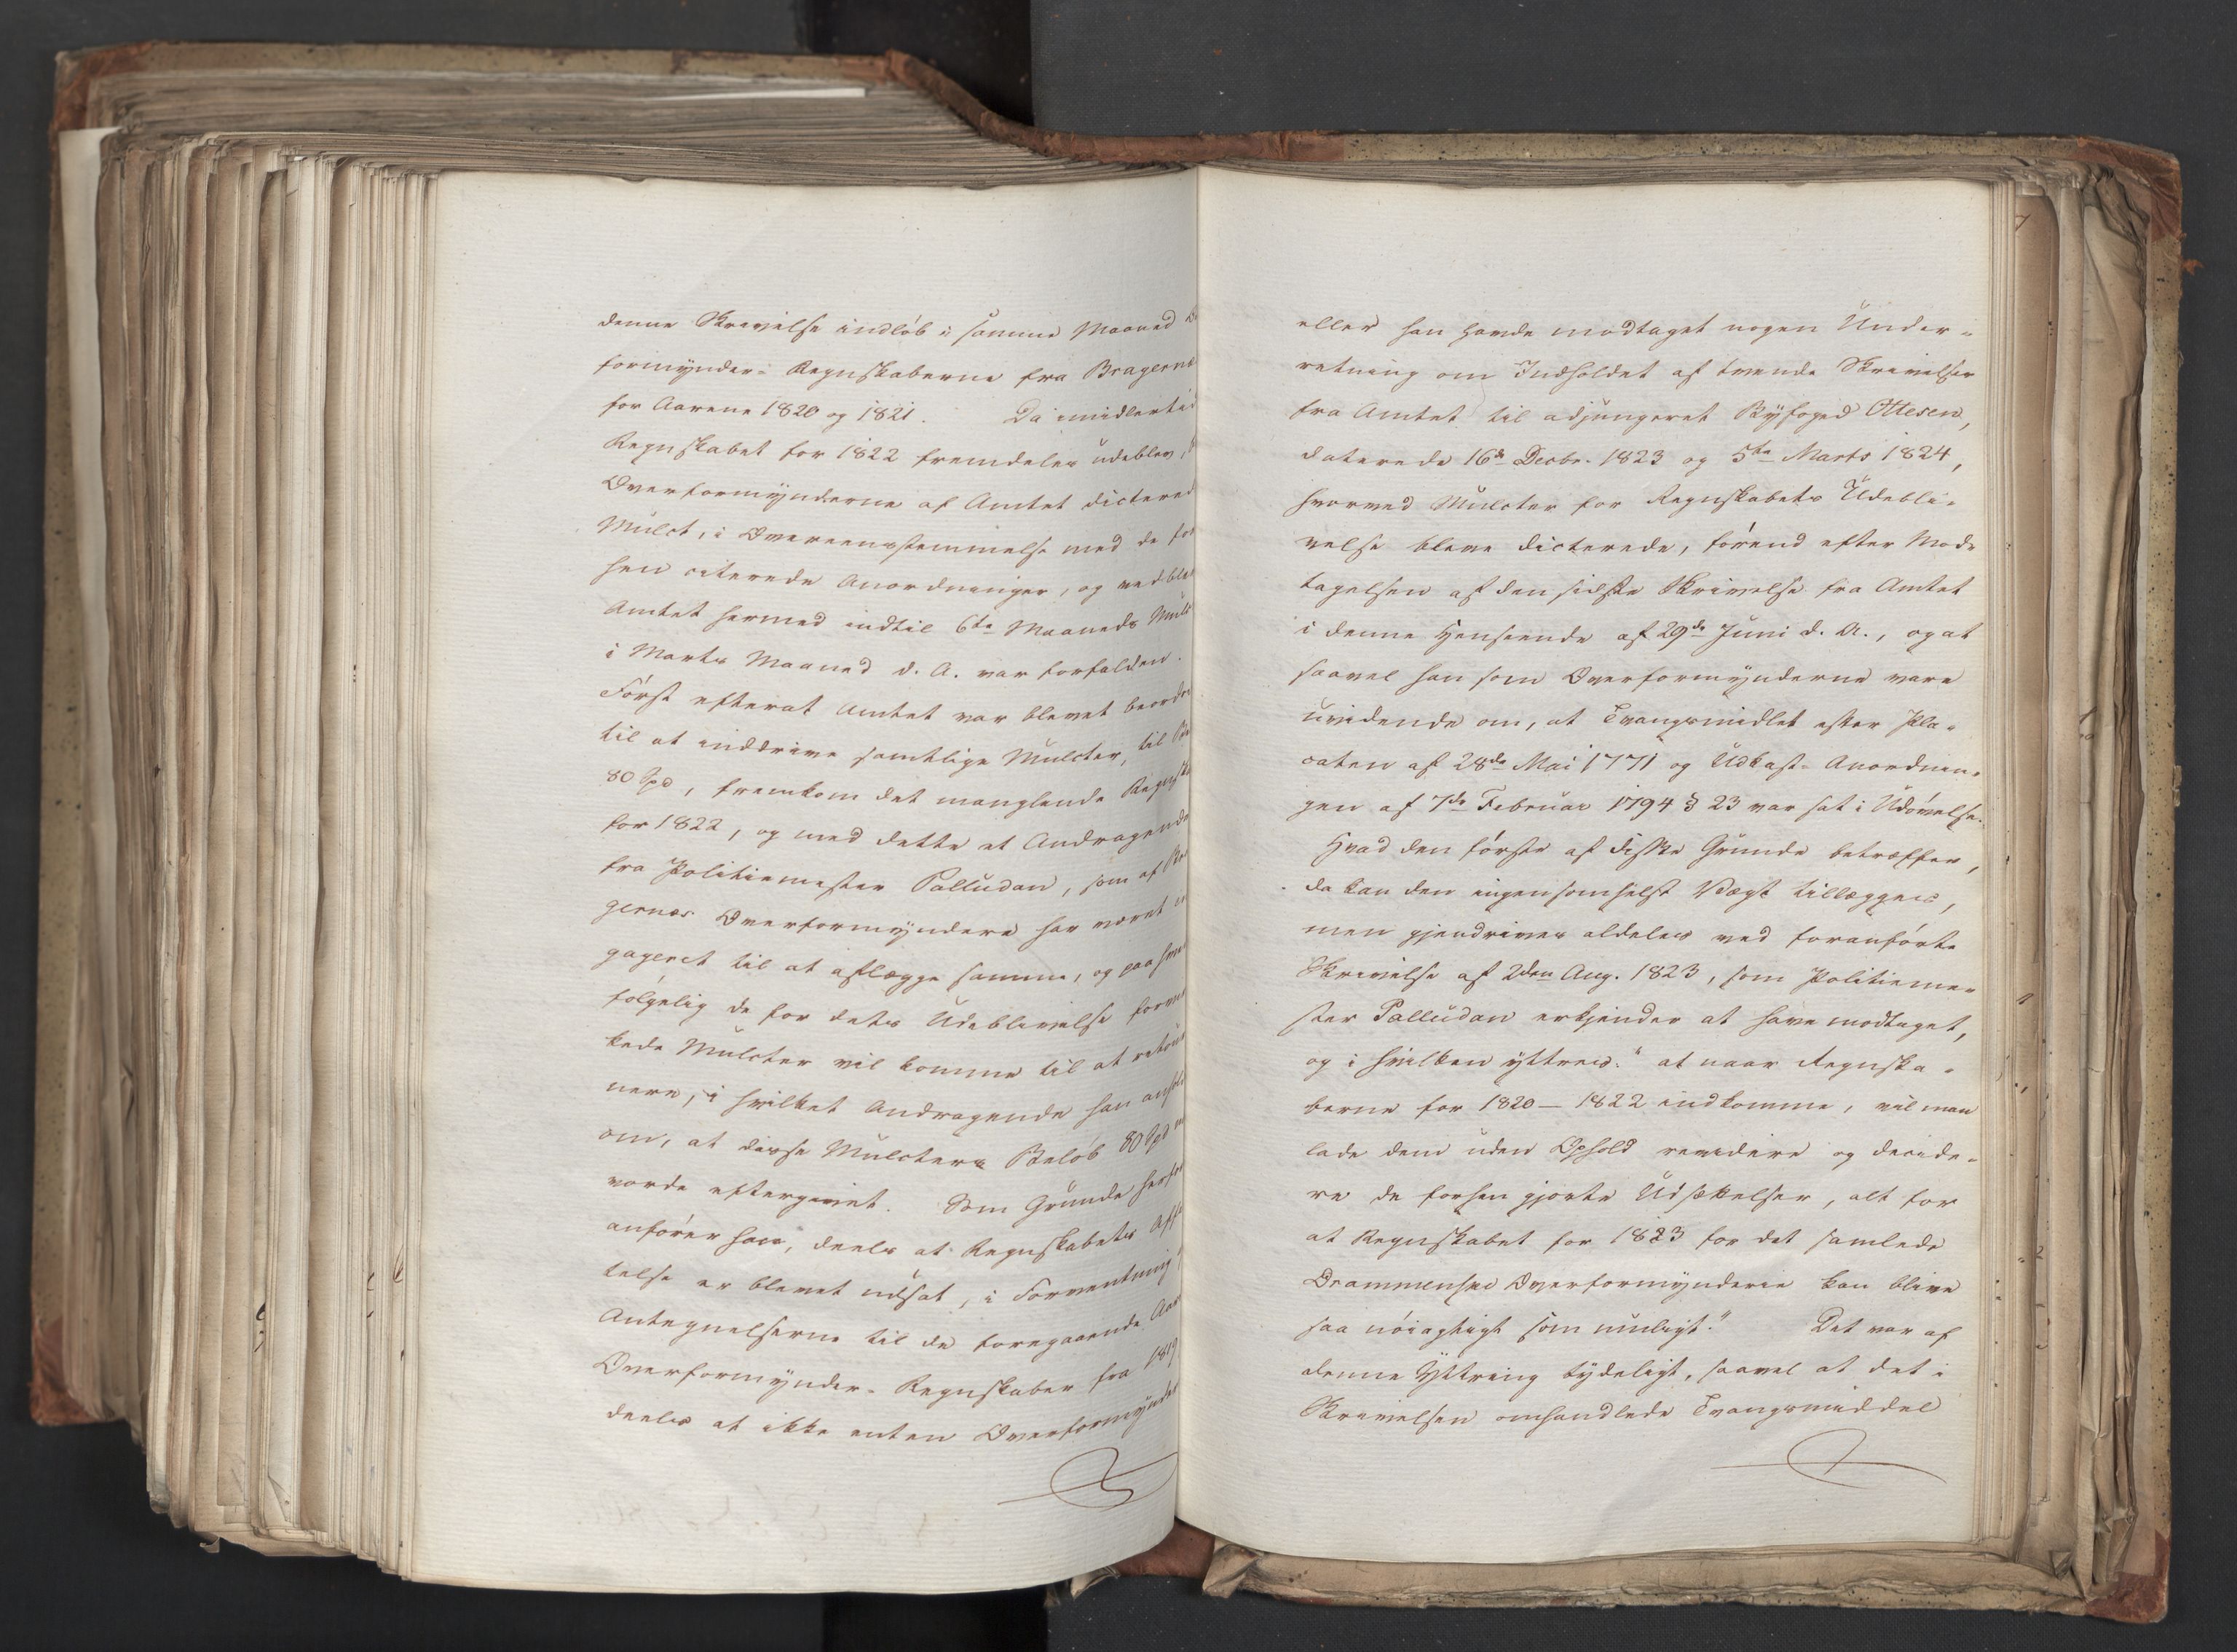 denne Skrivelse indløb i samme Maaned
formynder-Regnskaberne fra Bragernæ
for Aarene 1820 og 1821. Da imidlertid
Regnskabet for 1822 fremdeles udeblev,
Overformynderne af Amtet dictered
Mulct, i Overeensstemmelse med de for
hen citerede Anordninger, og vedblev
Amtet hermed indtil 6te Maaneds Mulct
i Marts Maaned d. A. var forfalden.
Først efterat Amtet var blevet beordre
til at inddrive samtlige Mulcter, til
80 Spd, fremkom det manglende Regnska
for 1822, og med dette et Andragende
fra Politiemester Palludan, som af Bra
gernæs Overformyndere har været en
gageret til at aflægge samme, og paa hvem
følgelig de for dets Udeblivelse forvir
kede Mulcter vil komme til at retour
nere, i hvilket Andragende han anhold
om, at disse Mulcters Beløb 80 Spd
vorde eftergivet. Som Grunde herfor
anfører han, deels at Regnskabets Affat
telse er blevet udsat, i Forventning
Antegnelserne til de foregaaende Aars
Overformynder-Regnskaber fra 1819
deels at ikke enten Overformynder
eller han havde modtaget nogen Under-
retning om Indholdet af tvende Skrivelser
fra Amtet til adjungeret Byfoged Ottesen,
daterede 16de Decbr. 1823 og 5te Marts 1824,
hvorved Mulcter for Regnskabets Udebli-
velse bleve dicterede, førend efter Mod-
tagelsen af den sidste Skrivelse fra Amtet
i denne Henseende af 29de Juni d. A., og at
saavel han som Overformynderne vare
uvidende om, at Tvangsmidlet efter Pla-
caten af 28de Mai 1771 og Udkast-Anordnin-
gen af 7de Februar 1794 § 23 var sat i Udøvelse.
Hvad den første af disse Grunde betræffer,
da kan den ingensomhelst Vægt tillægges,
men gjendrives aldeles ved foranførte
Skrivelse af 2den Aug. 1823, som Politieme-
ster Palludan erkjender at have modtaget,
og i hvilken yttres: "at naar Regnska-
berne for 1820 – 1822 indkomme, vil man
lade dem uden Ophold revidere og decide-
re de forhen gjorte Udsættelser, alt for
at Regnskabet for 1823 for det samlede
Drammenske Overformynderie kan blive
saa nøiagtigt som muligt." Det var af
denne Yttring tydeligt, saavel at det i
Skrivelsen omhandlede Tvangsmiddel